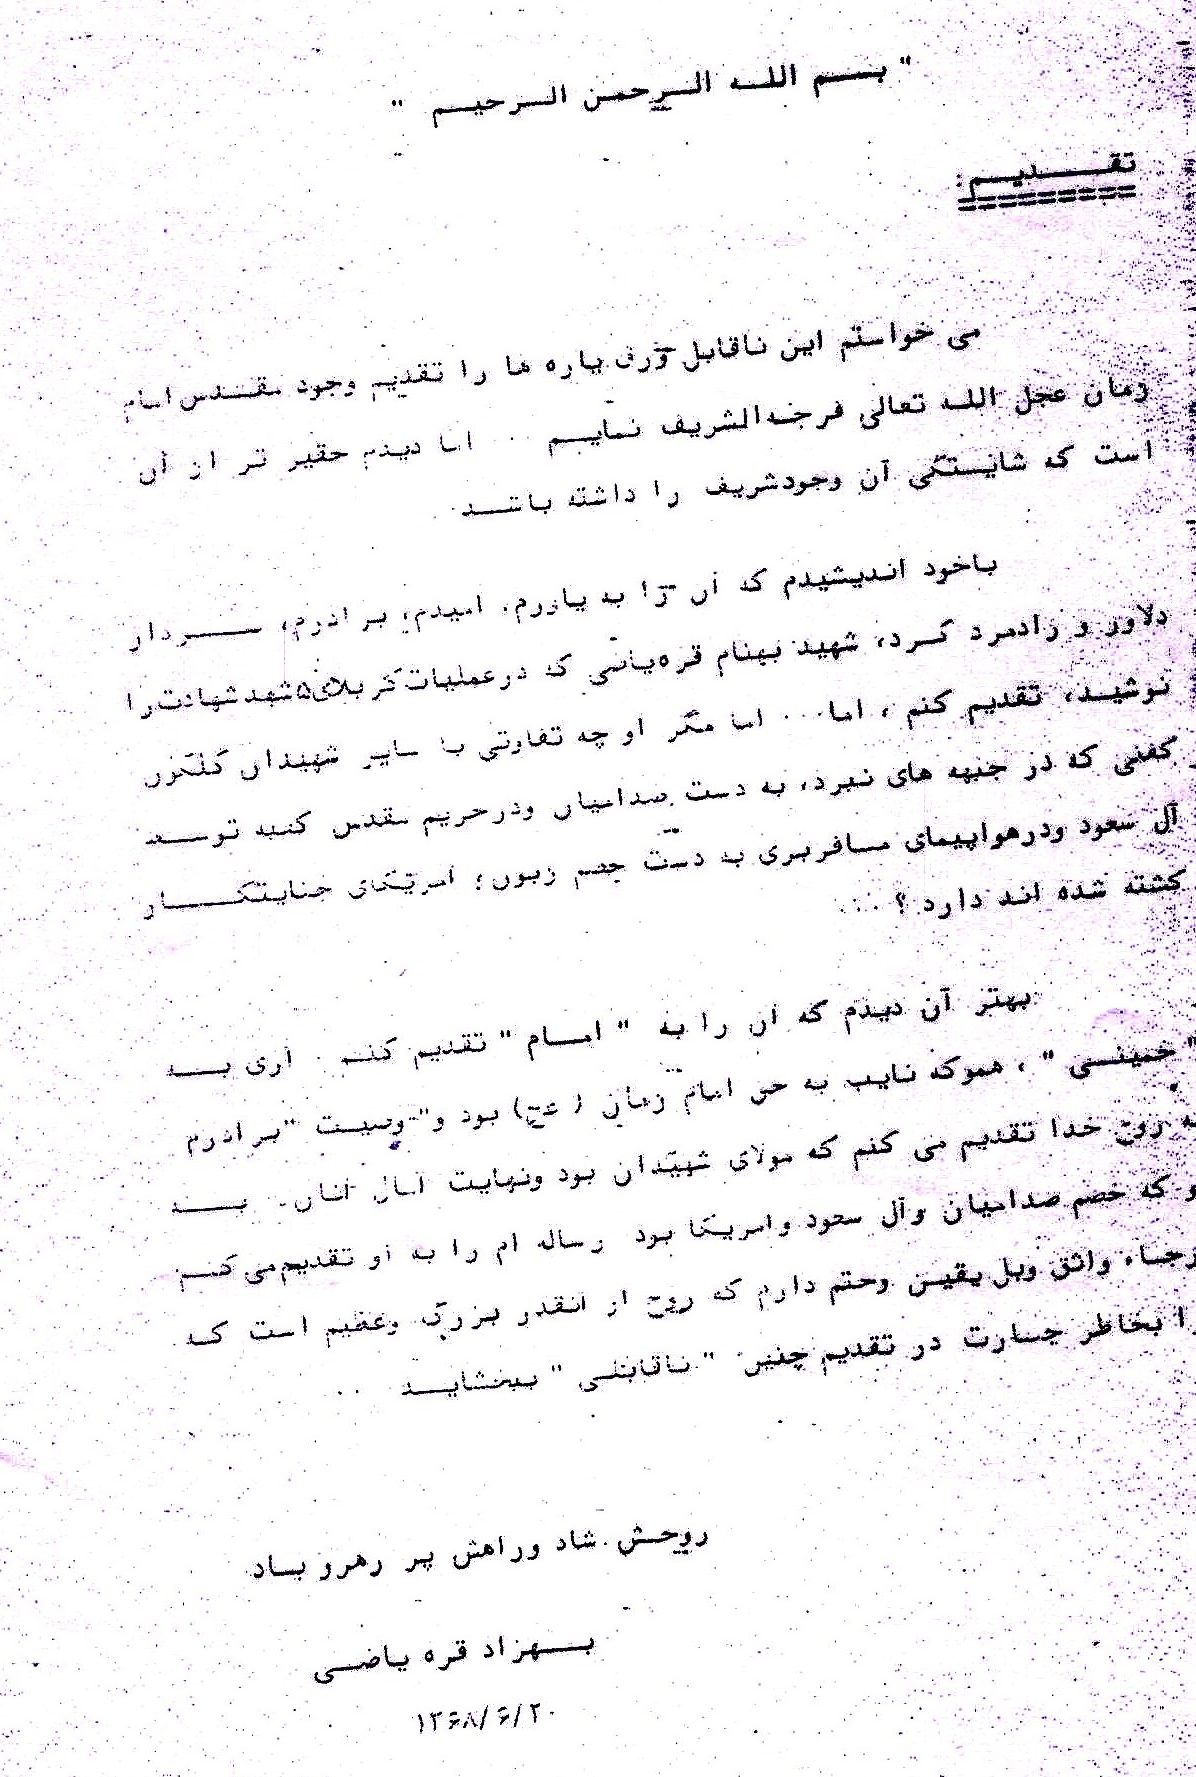 " بسم الله الرحمن الرحیم "
تقدیم :
می خواستم این ناقابل ورق پاره ها را تقدیم وجود مقدس امام
زمان عجل الله تعالی فرجه الشریف نمایم .. اما دیدم حقیر تر از آن
است که شایستگی آن وجودشریف را داشته باشد
باخود اندیشیدم که آن را به یاورم، امیدم، برادرم، سردار
دلاور و رادمرد کرد، شهید بهنام قره‌یاضی که درعملیات کربلای۵ شهد شهادت را
نوشید، تقدیم کنم ، اما... اما مگر او چه تفاوتی با سایر شهیدان گلگون
کفنی که در جبهه های نبرد، به دست صدامیان ودرحریم مقدس کعبه توسط
آل سعود ودرهواپیمای مسافربری به دست خصم زبون؛ امریکای جنایتکار
کشته شده اند دارد ؟ ...
بهتر آن دیدم که آن را به " امام " تقدیم کنم . آری به
" خمینی " ، هموکه نایب به حق امام زمان (عج) بود و" وصیت " برادرم
به روح خدا تقدیم می کنم که مولای شهیدان بود ونهایت آمال آنان. به
او که خصم صدامیان وآل سعود وامریکا بود رساله ام را به او تقدیم می کنم
رجاء واثق وبل یقین وحتم دارم که روح او آنقدر بزرگ وعظیم است که
را بخاطر جسارت در تقدیم چنین " ناقابلی " ببخشاید ..
روحش شاد وراهش پر رهرو باد
بهزاد قره یاضی
۱۳۶۸/۶/۲۰